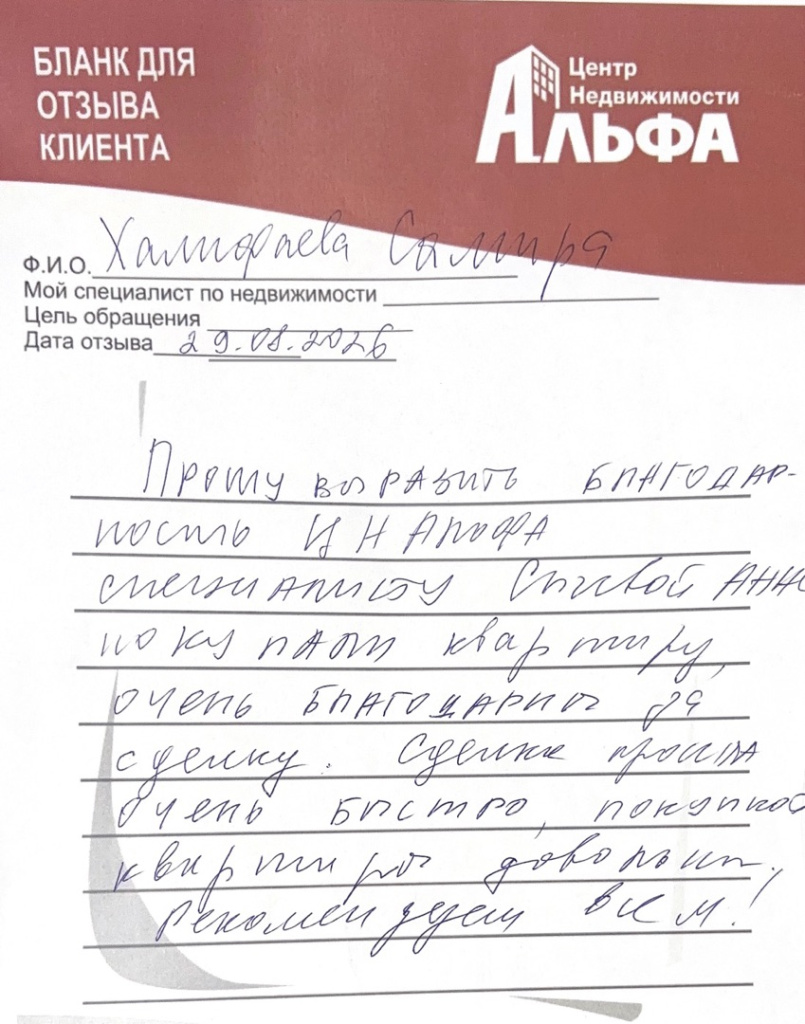 БЛАНК ДЛЯ
ОТЗЫВА
КЛИЕНТА
Центр
Недвижимости
АЛЬФА
Ф.И.О. Халифаева Самира
Мой специалист по недвижимости
Цель обращения
Дата отзыва 29.01.2026
Прошу выразить БЛАГОДАР-
ность ЦН АЛЬФА
специалисту Сычевой АННЕ
покупали квартиру,
очень БЛАГОДАРНЫ за
сделку. Сделка прошла
очень БЫСТРО, покупкой
квартиры довольны.
Рекомендуем всем!